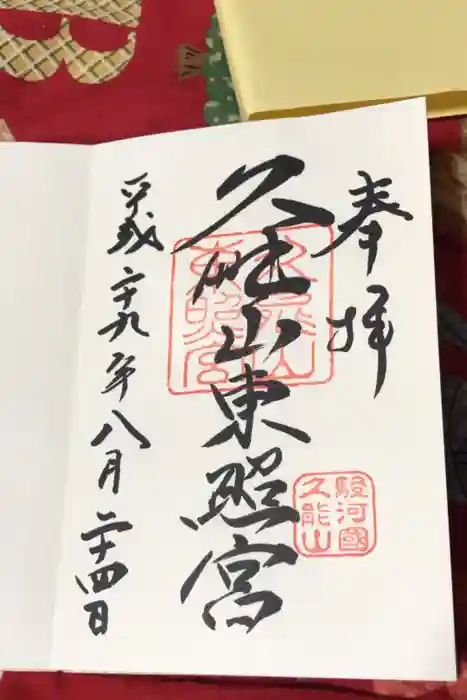 奉拝
久能山東照宮
平成二十九年八月二十四日
久能山
東照宮
駿河國
久能山
B